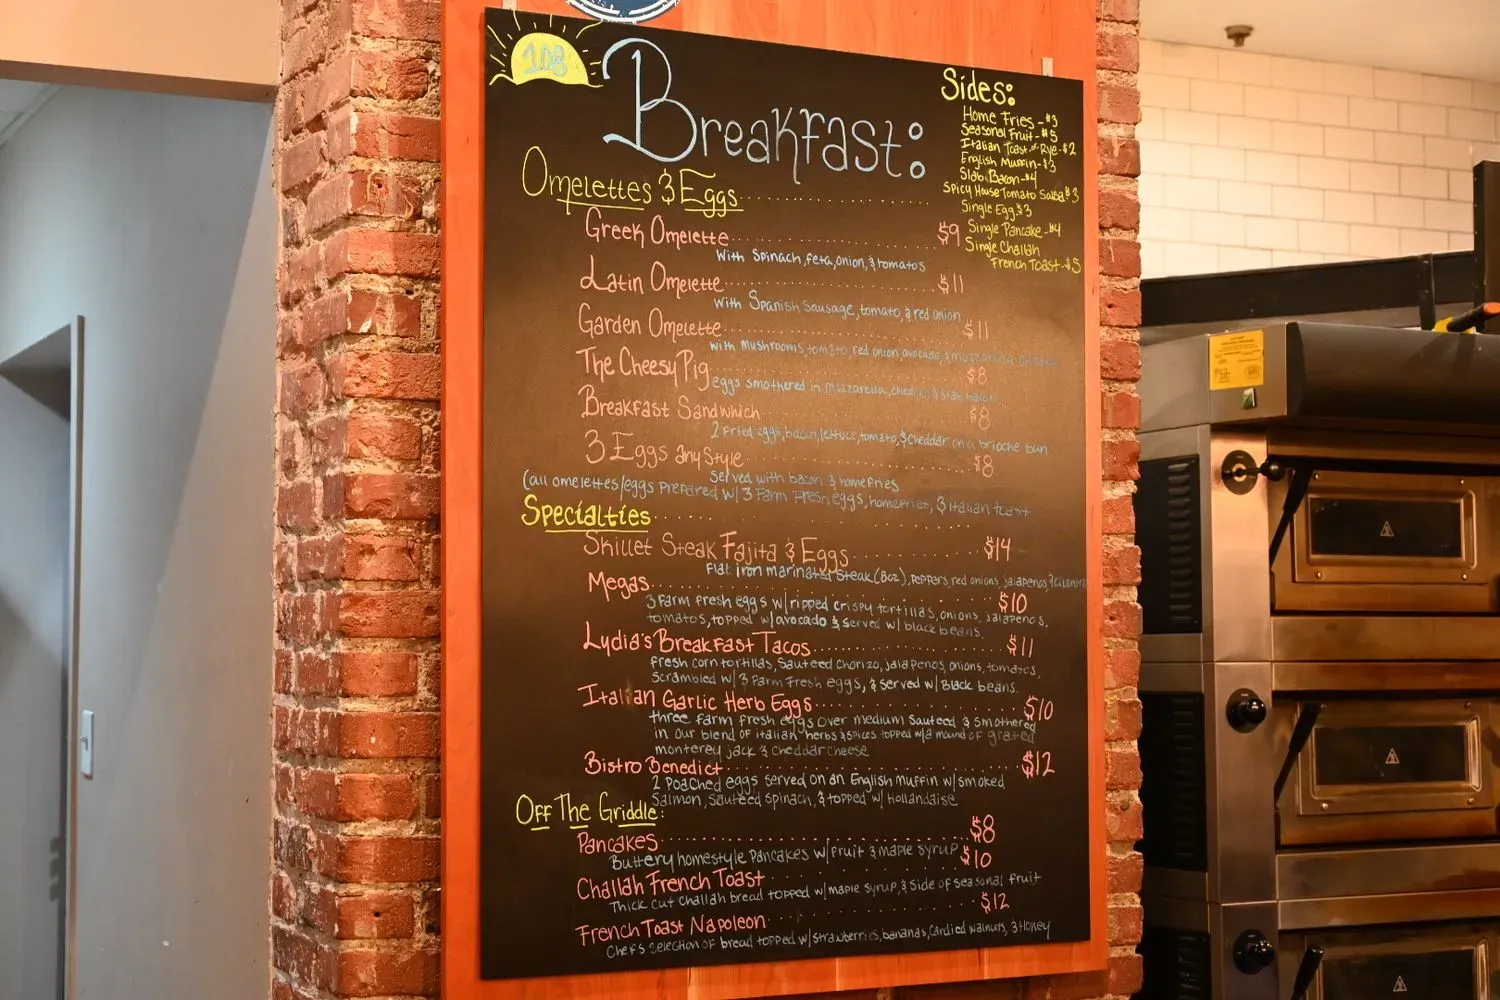 108
Breakfast:
Omelettes & Eggs
Greek Omelette $9
With Spinach, feta, onion, & tomatos
Latin Omelette $11
with Spanish Sausage, tomato, & red onion
Garden Omelette $11
with mushrooms, tomato, red onion, avocado, &
The Cheesy Pig $8
eggs smothered in mozzarella, & slab bacon
Breakfast Sandwhich $8
2 fried eggs, bacon, lettuce, tomato, & cheddar on a brioche bun
3 Eggs any Style $8
Served with bacon & homefries
(all omelettes/eggs Prepared w/ 3 Farm Fresh eggs, homefries, & italian toast
Specialties
Skillet Steak Fajita & Eggs $14
Flat iron marinated steak (8oz), peppers, red onions, jalapenos, & cilantro
Megas $10
3 Farm fresh eggs w/ripped crispy tortillas, onions, jalapenos,
tomatos, topped w/avocado & served w/ black beans.
Lydia's Breakfast Tacos $11
Fresh corn tortillas, Sauteed chorizo, jalapenos, onions, tomatos,
Scrambled w/ 3 Farm Fresh eggs, & served w/ Black beans.
Italian Garlic Herb Eggs $10
three farm fresh eggs over medium Sauteed & Smothered
in our blend of italian herbs & spices topped w/a mound of grated
monterey jack & cheddar cheese
Bistro Benedict $12
2 Poached eggs served on an English muffin w/smoked
Salmon, Sauteed spinach, & topped w/ Hollandaise
Off The Griddle:
Pancakes $8
Buttery homestyle Pancakes w/fruit & maple syrup
Challah French Toast $10
Thick cut challah bread topped w/maple syrup, & side of seasonal fruit
French Toast Napoleon $12
Chef's selection of bread topped w/strawberries, bananas, Candied walnuts, & Honey
Sides:
Home Fries - $3
Seasonal Fruit - $5
Italian Toast or Rye - $2
English Muffin - $3
Slab Bacon - $4
Spicy House Tomato Salsa $3
Single Egg $3
Single Pancake - $4
Single Challah
French Toast - $5